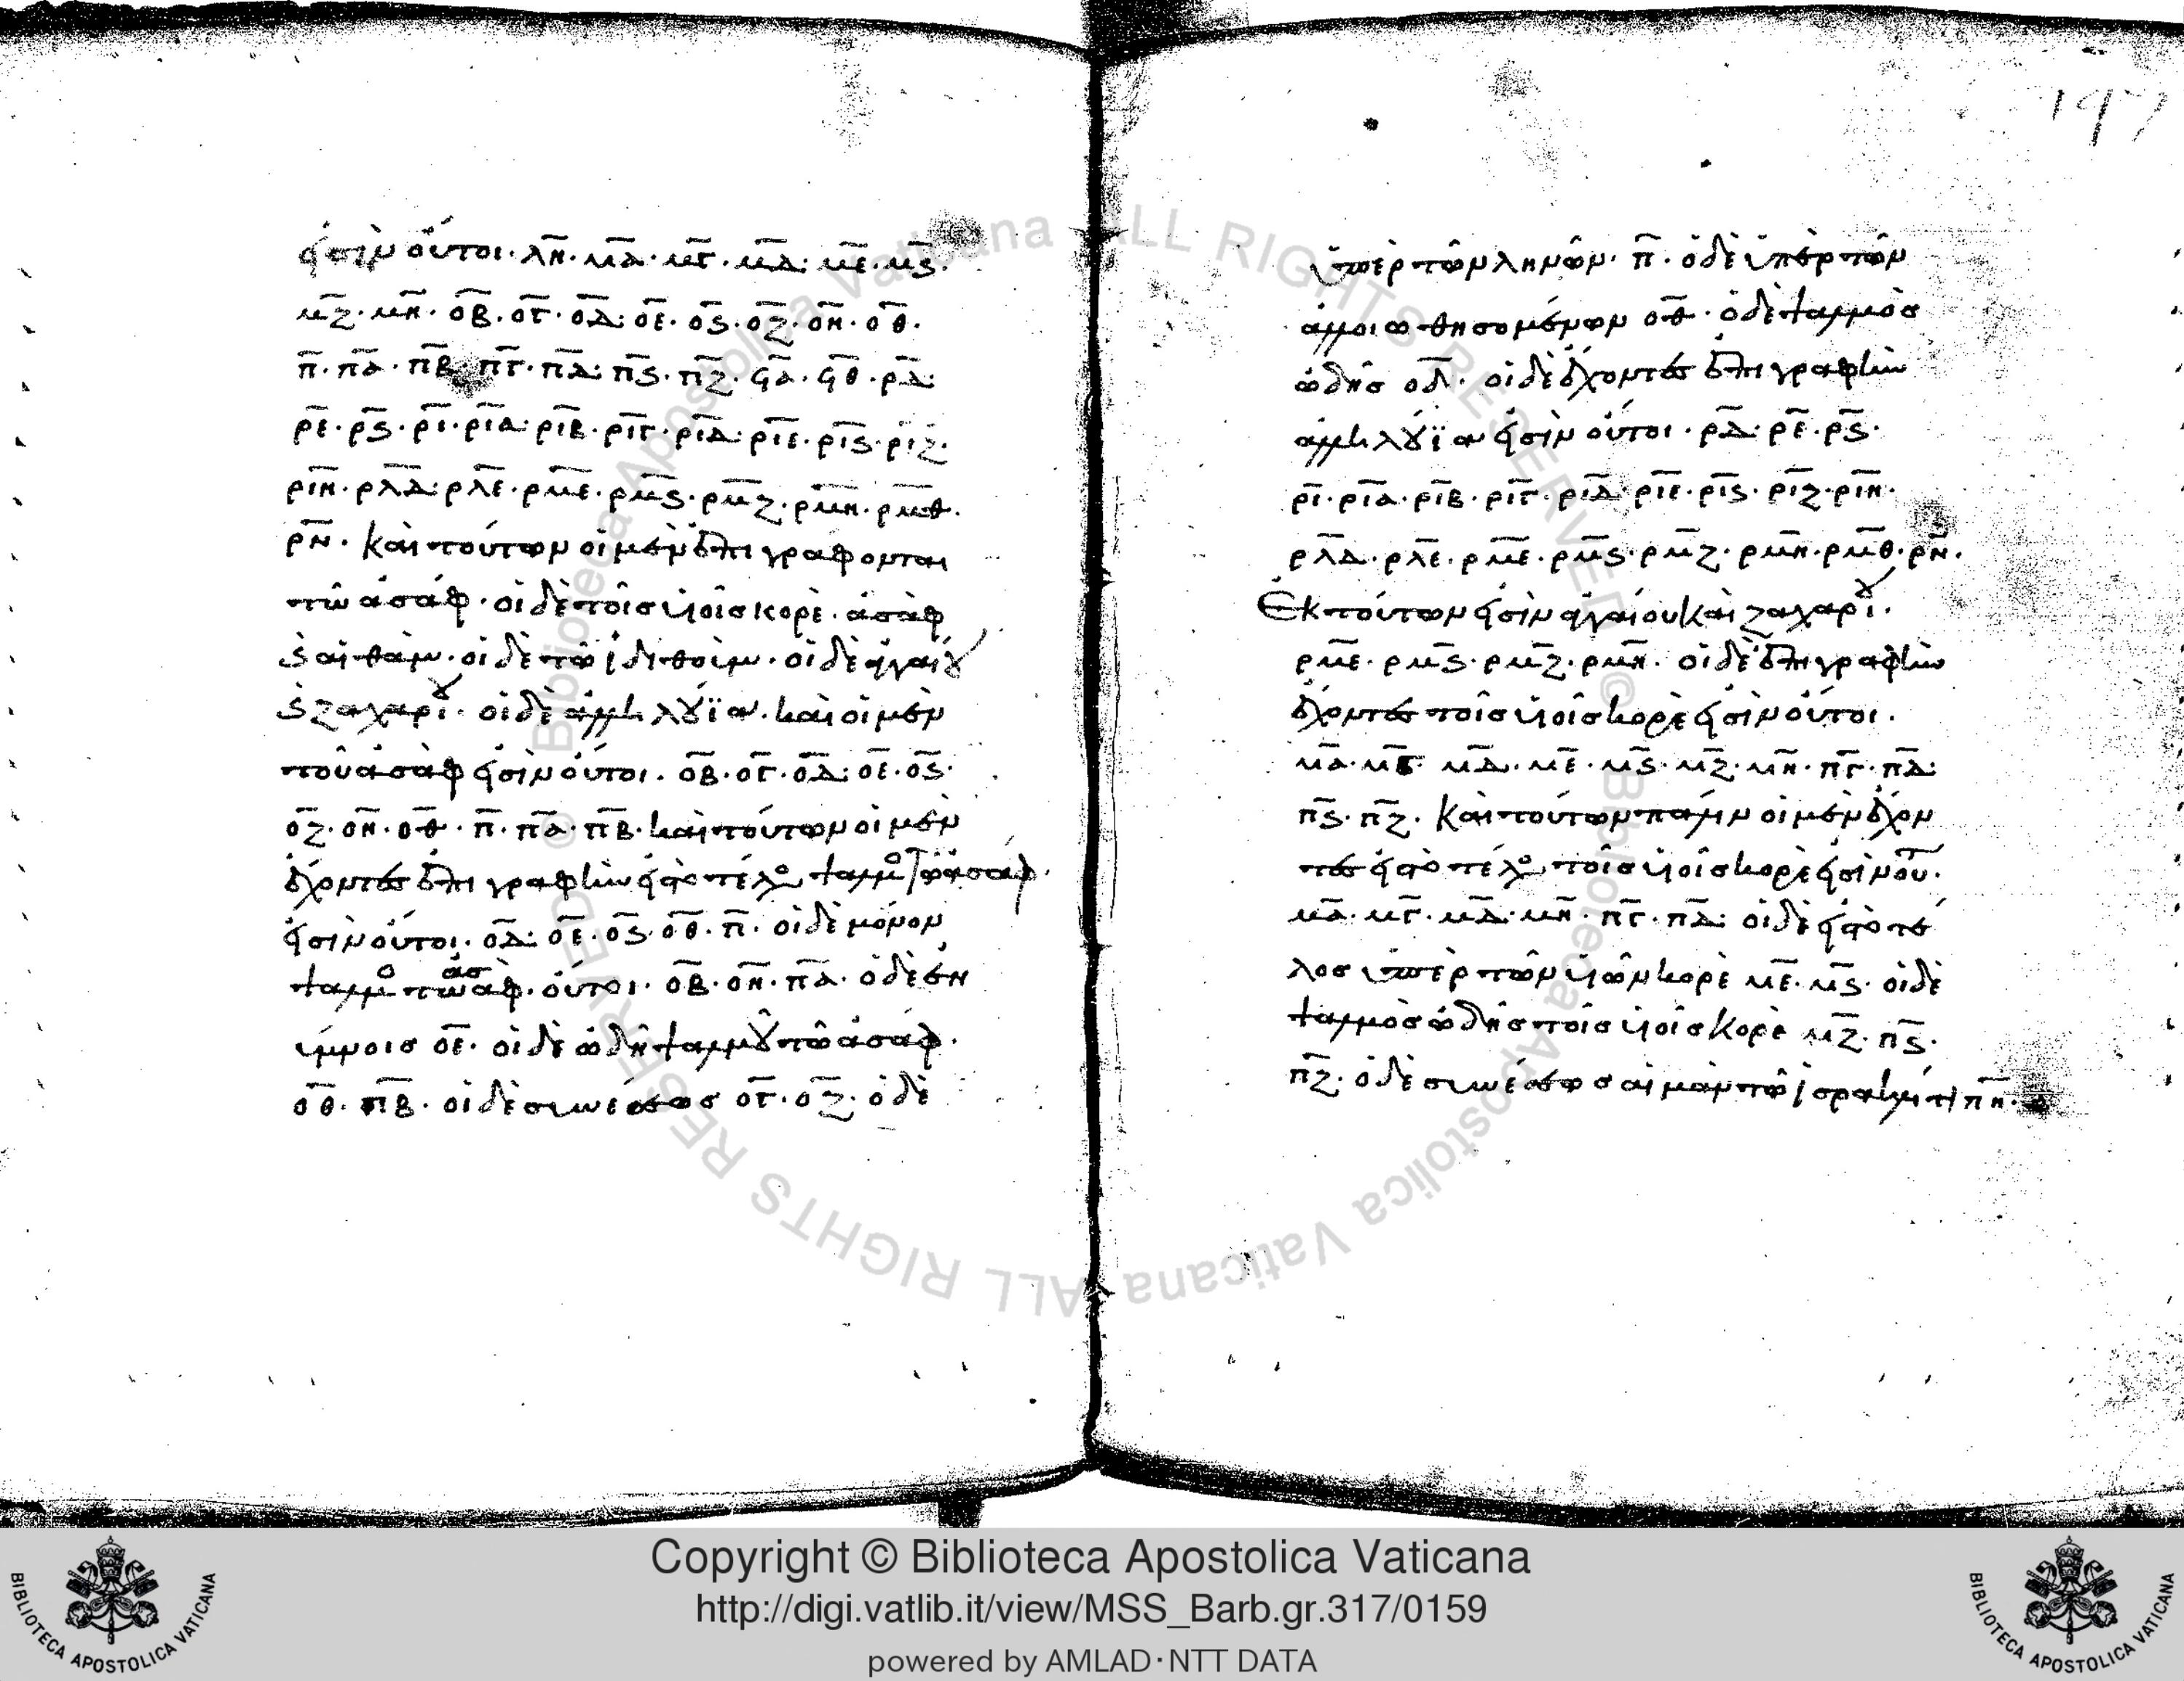 εἰσὶν οὗτοι· λη̅· μα̅· μγ̅· μδ̅· με̅· μς̅·
μζ̅· μη̅· οβ̅· ογ̅· οδ̅· οε̅· ος̅· οζ̅· οη̅· οθ̅·
π̅· πα̅· πβ̅· πγ̅· πδ̅· πς̅· πζ̅· ϟα̅· ϟθ̅· ρδ̅·
ρε̅· ρς̅· ρι̅· ρια̅· ριβ̅· ριγ̅· ριδ̅· ριε̅· ρις̅· ριζ̅·
ριη̅· ρλδ̅· ρλε̅· ρμε̅· ρμς̅· ρμζ̅· ρμη̅· ρμθ̅·
ρν̅· καὶ τούτων οἱ μὲν ἐπιγράφονται
τῶ ἀσάφ· οἱ δὲ τοῖς υἱοῖς κορὲ· ἀσὰφ
ϛ αἰθάμ· οἱ δὲ τῶ ἰδιθοὶμ· οἱ δὲ ἀγγαίου
ϛ ζαχαρίου· οἱ δὲ ἀλληλούϊα· καὶ οἱ μὲν
τοῦ ἀσὰφ εἰσὶν οὗτοι· οβ̅· ογ̅· οδ̅· οε̅· ος̅·
οζ̅· οη̅· οθ̅· π̅· πα̅· πβ̅· καὶ τούτων οἱ μὲν
ἔχοντες ἐπιγραφὴν εἰς τὸ τέλο ψαλμο τῶ ἀσάφ·
εἰσὶν οὗτοι· οδ̅· οε̅· ος̅· οθ̅· π̅· οἱ δὲ μόνον
ψαλμο τῶ ἀσαφ· οὗτοι· οβ̅· οη̅· πα̅· ὁ δὲ ἐν
ὕμνοις οε̅· οἱ δὲ ὠδὴ ψαλμοῦ τῶ ἀσάφ·
οθ̅· πβ̅· οἱ δὲ συνέσεως ογ̅· οζ̅· ὁ δὲ
197
ὑπὲρ τῶν ληνῶν· π̅· ὁ δὲ ὑπὲρ τῶν
ἀλλοιωθησομένων οθ̅· ὁ δὲ ψαλμὸς
ὠδῆς οδ̅· οἱ δὲ ἔχοντες ἐπιγραφὴν
ἀλληλούϊα εἰσὶν οὗτοι· ρδ̅· ρε̅· ρς̅·
ρι̅· ρια̅· ριβ̅· ριγ̅· ριδ̅· ριε̅· ρις̅· ριζ̅· ριη̅·
ρλδ̅· ρλε̅· ρμε̅· ρμς̅· ρμζ̅· ρμη̅· ρμθ̅· ρν̅·
Ἐκ τούτων εἰσὶν ἀγγαίου καὶ ζαχαρίου·
ρμε̅· ρμς̅· ρμζ̅· ρμη̅· οἱ δὲ ἐπιγραφὴν
ἔχοντες τοῖς υἱοῖς κορὲ εἰσὶν οὗτοι·
μα̅· μγ̅· μδ̅· με̅· μς̅· μζ̅· μη̅· πγ̅· πδ̅·
πς̅· πζ̅· καὶ τούτων πάλιν οἱ μὲν ἔχον
τες εἰς τὸ τέλο τοῖς υἱοῖς κορὲ εἰσὶν οὗτ·
μα̅· μγ̅· μδ̅· μη̅· πγ̅· πδ̅· οἱ δὲ εἰς τὸ τέ
λος ὑπὲρ τῶν υἱῶν κορὲ με̅· μς̅· οἱ δὲ
ψαλμὸς ὠδῆς τοῖς υἱοῖς κορὲ μζ̅· πς̅·
πζ̅· ὁ δὲ συνέσεως αἰμὰν τῶ ἰσραηλίτη πη̅·
Copyright © Biblioteca Apostolica Vaticana
http://digi.vatlib.it/view/MSS_Barb.gr.317/0159
powered by AMLAD·NTT DATA
BIBLIOTECA APOSTOLICA VATICANA
BIBLIOTECA APOSTOLICA VATICANA
Biblioteca Apostolica Vaticana ALL RIGHTS RESERVED © Biblioteca Apostolica Vaticana ALL RIGHTS RESERVED ©